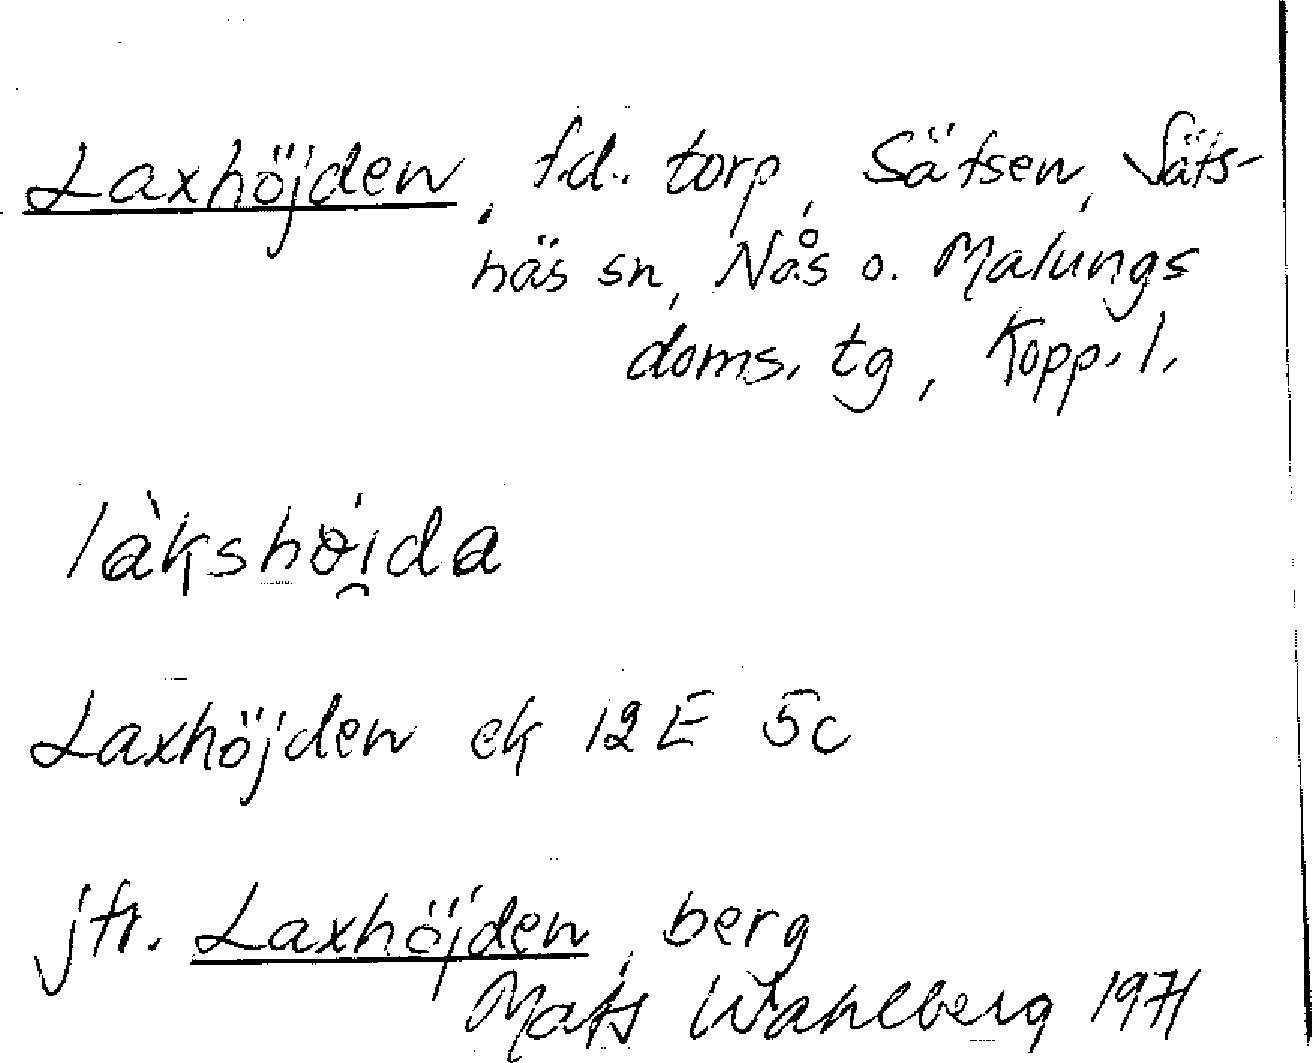 Laxhöjden, f.d. torp, Sätsen, Säfs-
näs sn, Nås o. Malungs
doms. tg, Kopp. l.
làkshö́i̯da
Laxhöjden ek 12E 5c
jfr. Laxhöjden, berg
Mats Wahlberg 1971